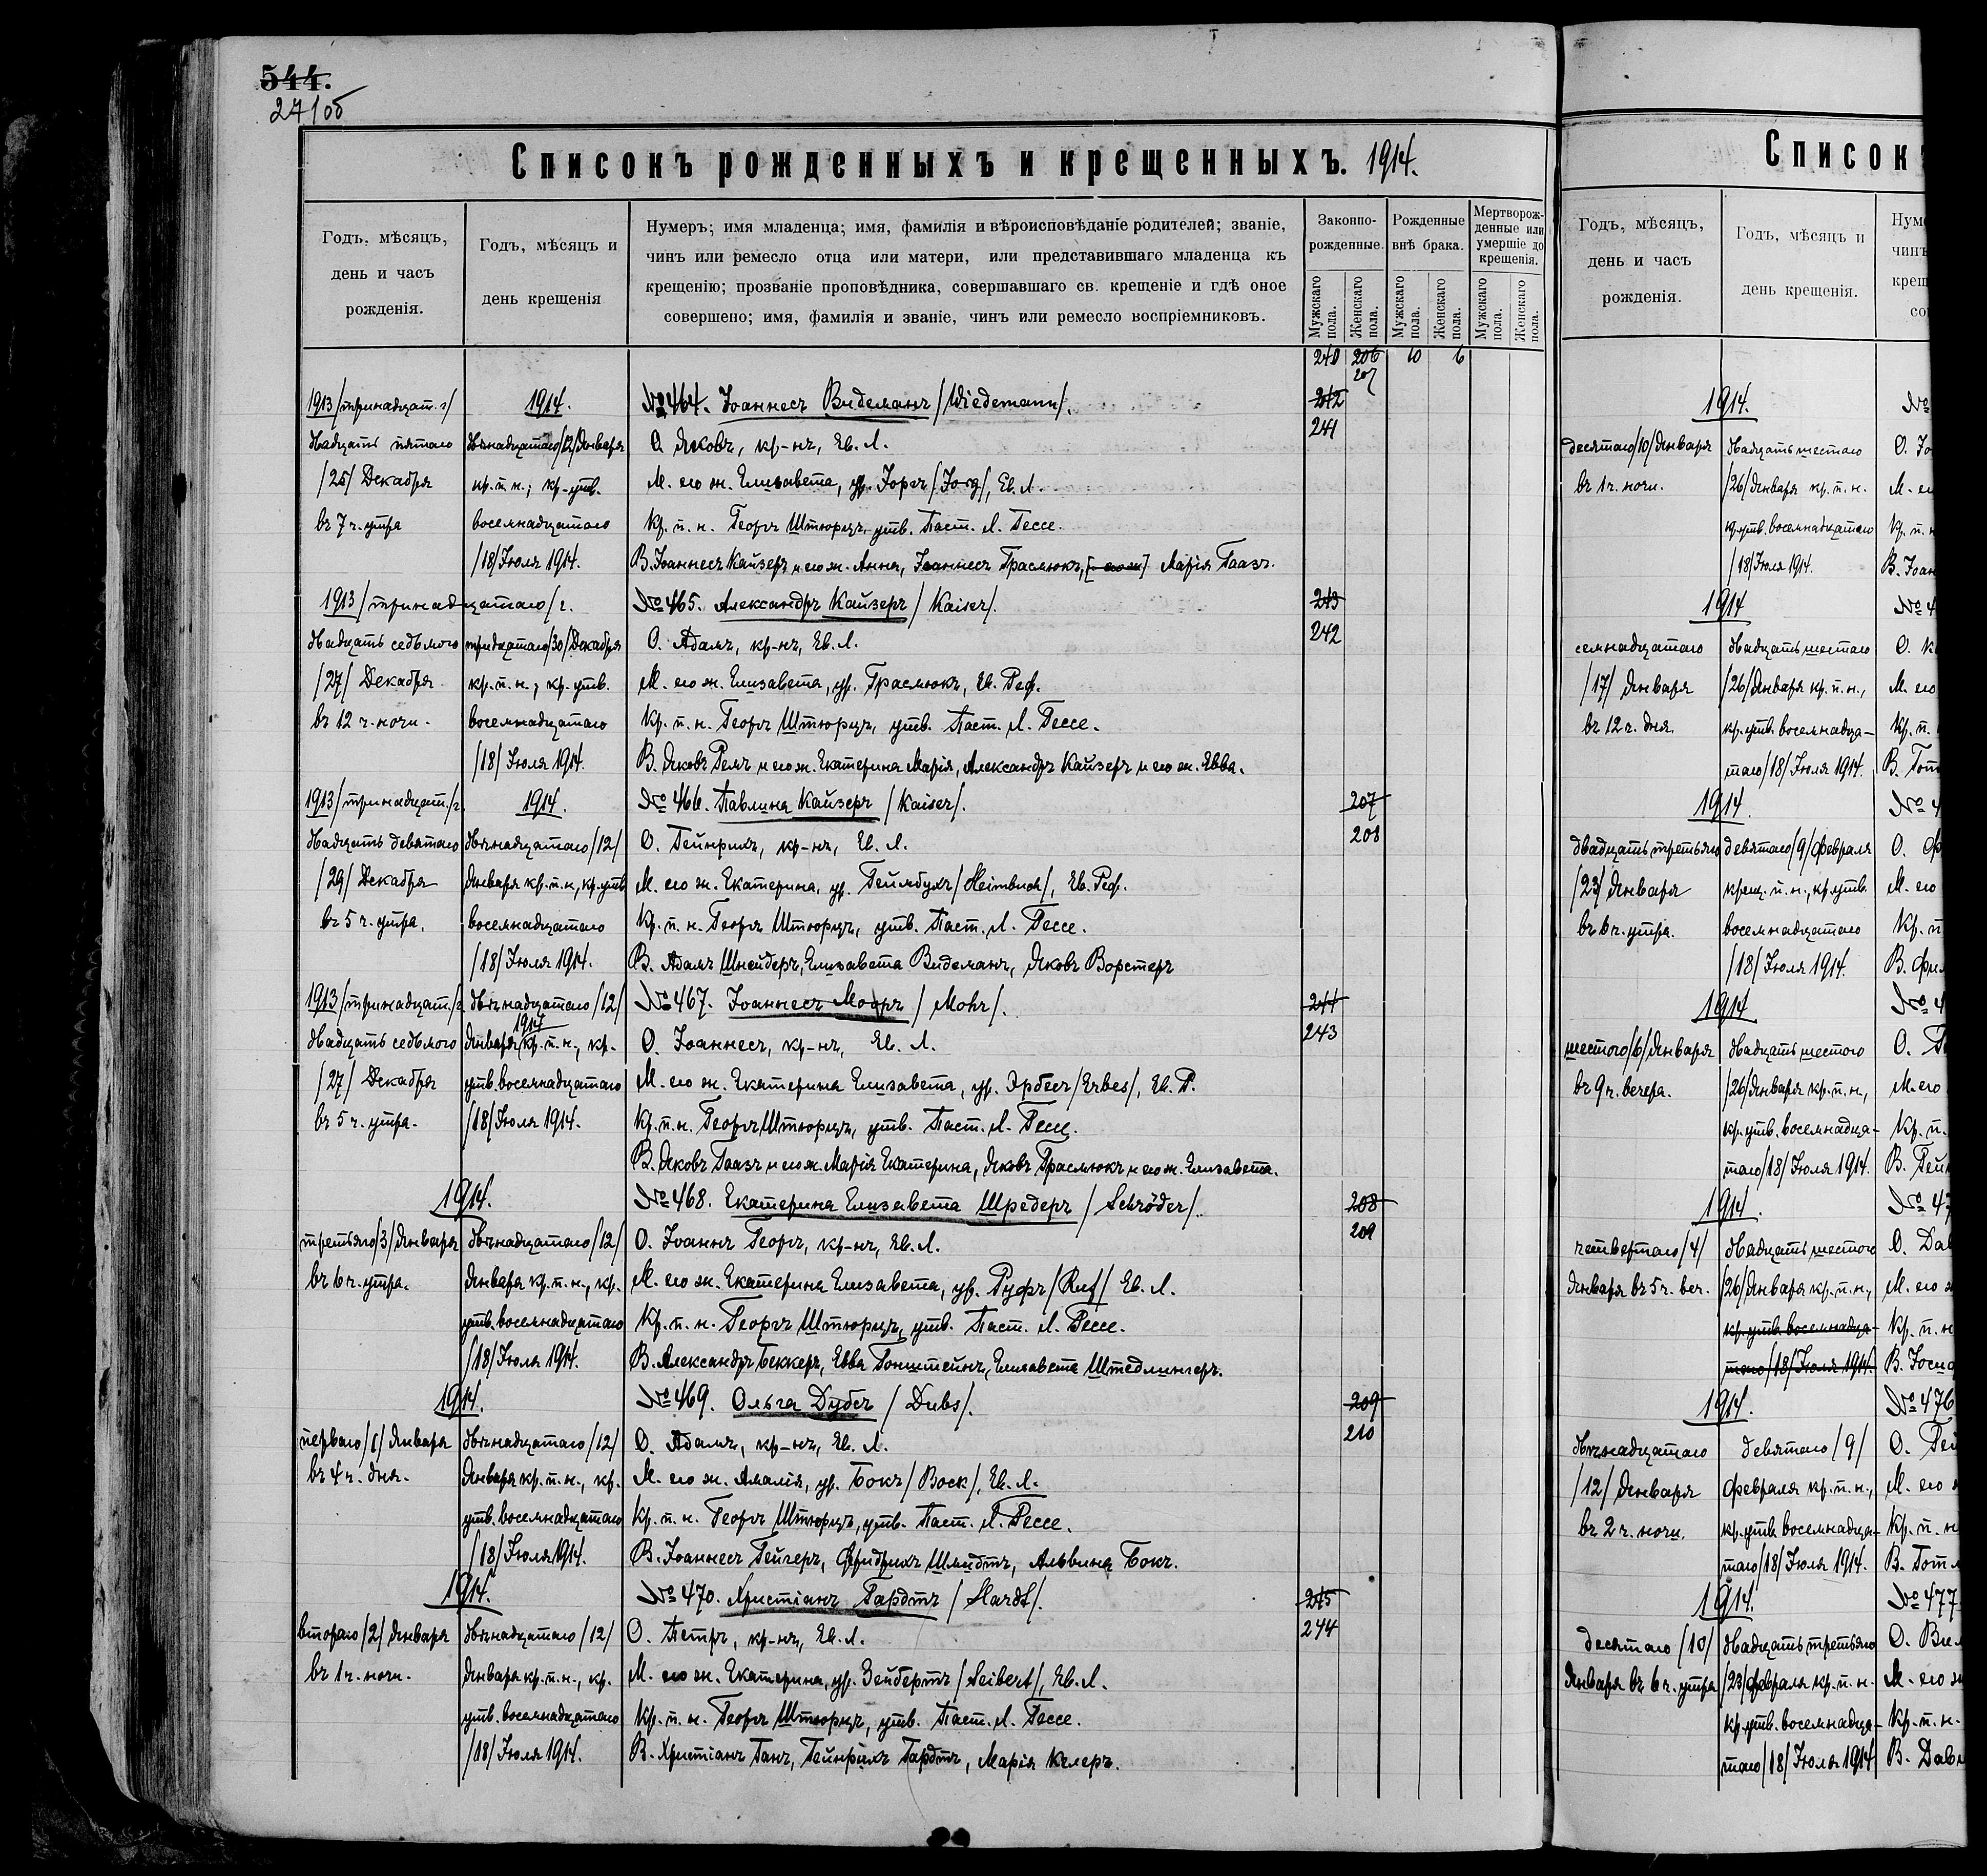 544.
27/об
Списокъ рожденныхъ и крещенныхъ. 1914.
Годъ, мѣсяцъ, день и часъ рожденія.
Годъ, мѣсяцъ и день крещенія
Нумеръ; имя младенца; имя, фамилія и вѣроисповѣданіе родителей; званіе,
чинъ или ремесло отца или матери, или представившаго младенца къ
крещенію; прозваніе проповѣдника, совершавшаго св. крещеніе и гдѣ оное
совершено; имя, фамилія и званіе, чинъ или ремесло воспріемниковъ.
Законно-рожденные.
Рожденные внѣ брака.
Мертворож-денные или умершіе до крещенія.
Мужскаго пола. Женскаго пола. Мужскаго пола. Женскаго пола. Мужскаго пола. Женскаго пола.
240 206 10 6
207
1913/тринадцат. г/ 1914. № 464. Іоаннесъ Видеманъ /Wiedemann/. 242
двадцать пятаго двѣнадцатаго/12/Января О. Яковъ, кр-нъ, Ев. Л. 241
/25/ Декабря кр. п. н.; кр. утв. М. его ж. Елизавета, ур. Іоргъ /Jorg/, Ев. Л.
въ 7 ч. утра восемнадцатаго Кр. п. н. Георгъ Штюрцъ, утв. Паст. А. Гессе.
/18/ Іюля 1914. В. Іоаннесъ Кайзеръ и его ж. Анна, Іоаннесъ Грасмюкъ, Марія Гаазъ.
1913/тринадцатаго/г. № 465. Александръ Кайзеръ /Kaiser/. 243
двадцать седьмого тридцатаго/30/Декабря О. Адамъ, кр-нъ, Ев. Л. 242
/27/ Декабря кр. п. н.; кр. утв. М. его ж. Елизавета, ур. Грасмюкъ, Ев. Реф.
въ 12 ч. ночи. восемнадцатаго Кр. п. н. Георгъ Штюрцъ, утв. Паст. А. Гессе.
/18/ Іюля 1914. В. Яковъ Ремъ и его ж. Екатерина Марія, Александръ Кайзеръ и его ж. Евва.
1913/тринадцат./г. 1914. № 466. Павлина Кайзеръ /Kaiser/. 207
двадцать девятаго двѣнадцатаго/12/ О. Гейнрихъ, кр-нъ, Ев. Л. 208
/29/ Декабря Января кр. п. н., кр. утв М. его ж. Екатерина, ур. Геймбухъ /Heimbuch/, Ев. Реф.
въ 5 ч. утра. восемнадцатаго Кр. п. н. Георгъ Штюрцъ, утв. Паст. А. Гессе.
/18/ Іюля 1914. В. Адамъ Шнейдеръ, Елизавета Видеманъ, Яковъ Ворстеръ
1913/тринадцат./г. двѣнадцатаго/12/ № 467. Іоаннесъ Мооръ /Mohr/. 244
1914
двадцать седьмого Января кр. п. н., кр. О. Іоаннесъ, кр-нъ, Ев. Л. 243
/27/ Декабря утв. восемнадцатаго М. его ж. Екатерина Елизавета, ур. Эрбесъ /Erbes/, Ев. Р.
въ 5 ч. утра. /18/ Іюля 1914. Кр. п. н. Георгъ Штюрцъ, утв. Паст. А. Гессе.
В. Яковъ Гаазъ и его ж. Марія Екатерина, Яковъ Грасмюкъ и его ж. Елизавета.
1914. № 468. Екатерина Елизавета Шредеръ /Schröder/. 208
третьяго/3/Января двѣнадцатаго/12/ О. Іоаннъ Георгъ, кр-нъ, Ев. Л. 209
въ 6 ч. утра. Января кр. п. н., кр. М. его ж. Екатерина Елизавета, ур. Руфъ /Ruf/ Ев. Л.
утв. восемнадцатаго Кр. п. н. Георгъ Штюрцъ, утв. Паст. А. Гессе.
/18/ Іюля 1914. В. Александръ Беккеръ, Евва Гонштейнъ, Елизавета Штедлингеръ.
1914. № 469. Ольга Дубсъ /Dubs/. 209
перваго/1/Января двѣнадцатаго/12/ О. Адамъ, кр-нъ, Ев. Л. 210
въ 4 ч. дня. Января кр. п. н., кр. М. его ж. Амалія, ур. Бокъ /Bock/, Ев. Л.
утв. восемнадцатаго Кр. п. н. Георгъ Штюрцъ, утв. Паст. А. Гессе.
/18/ Іюля 1914. В. Іоаннесъ Гейгеръ, Фридрихъ Шмидтъ, Альвина Бокъ.
1914. № 470. Христіанъ Гардтъ /Hardt/. 245
второго/2/Января двѣнадцатаго/12/ О. Петръ, кр-нъ, Ев. Л. 244
въ 1 ч. ночи. Января кр. п. н., кр. М. его ж. Екатерина, ур. Зейбертъ /Seibert/, Ев. Л.
утв. восемнадцатаго Кр. п. н. Георгъ Штюрцъ, утв. Паст. А. Гессе.
/18/ Іюля 1914. В. Христіанъ Ганъ, Гейнрихъ Гардтъ, Марія Келеръ.
Списокъ
Годъ, мѣсяцъ, день и часъ рожденія.
Годъ, мѣсяцъ и день крещенія.
1914. №
десятаго/10/Января двадцать шестаго О. Іо
въ 1 ч. ночи. /26/Января кр. п. н. М. е
кр. утв. восемнадцатаго Кр. п.
/18/ Іюля 1914. В. Іоан
1914 № 4
семнадцатаго двадцать шестаго О. К
/17/ Января /26/Января кр. п. н., М. его
въ 12 ч. дня. кр. утв. восемнадца- Кр. п.
таго/18/Іюля 1914. В. Гот
1914. № 4
двадцать третьяго девятаго/9/Февраля О. Ф
/23/ Января крещ. п. н., кр. утв. М. его
въ 6 ч. утра. восемнадцатаго Кр. п
/18/ Іюля 1914. В. Фил
1914 № 4
шестого/6/Января двадцать шестого О. Г
въ 9 ч. вечера. /26/Января кр. п. н., М. его
кр. утв. восемнадца- Кр. п.
таго/18/Іюля 1914. В. Гей
1914. № 47
четвертаго/4/ двадцать шестого О. Дав
Января въ 5 ч. веч. /26/Января кр. п. н., М. его ж
кр. утв. восемнадца- Кр. п. н
таго/18/Іюля 1914. В. Іоси
1914. № 476
двѣнадцатаго девятаго/9/ О. Гей
/12/ Января Февраля кр. п. н., М. его
въ 2 ч. ночи. кр. утв. восемнадца- Кр. п. н
таго/18/Іюля 1914. В. Гот
1914. № 477
десятаго/10/ двадцать третьяго О. Вил
Января въ 6 ч. утра /23/Февраля кр. п. н. М. его ж
кр. утв. восемнадца- Кр. п. н.
таго/18/Іюля 1914 В. Дав